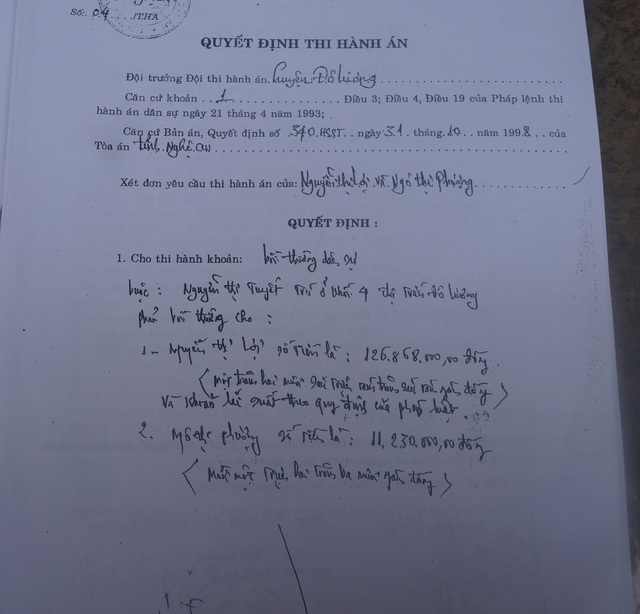 Số: 04
/THA
QUYẾT ĐỊNH THI HÀNH ÁN
Đội trưởng Đội thi hành án huyện Đô Lương
Căn cứ khoản ... 1 ... Điều 3; Điều 4, Điều 19 của Pháp lệnh thi
hành án dân sự ngày 21 tháng 4 năm 1993;
Căn cứ Bản án, Quyết định số 340.HSST.. ngày 31. tháng. 10 .. năm 1998 .. của
Tòa án tỉnh Nghệ An
Xét đơn yêu cầu thi hành án của: Nguyễn thị Lợi và Ngô thị Phương
QUYẾT ĐỊNH :
1. Cho thi hành khoản: bồi thường dân sự
buộc : Nguyễn thị Tuyết trú ở khối 4 thị trấn Đô Lương
phải bồi thường cho :
1 - Nguyễn thị Lợi số tiền là : 126.868.000,00 đồng.
(một trăm hai mươi sáu triệu tám trăm sáu tám ngàn đồng)
Và khoản lãi suất theo quy định của pháp luật.
2. Ngô thị phương số tiền là : 11,230.000,00 đồng
(mười một triệu hai trăm ba mươi ngàn đồng)